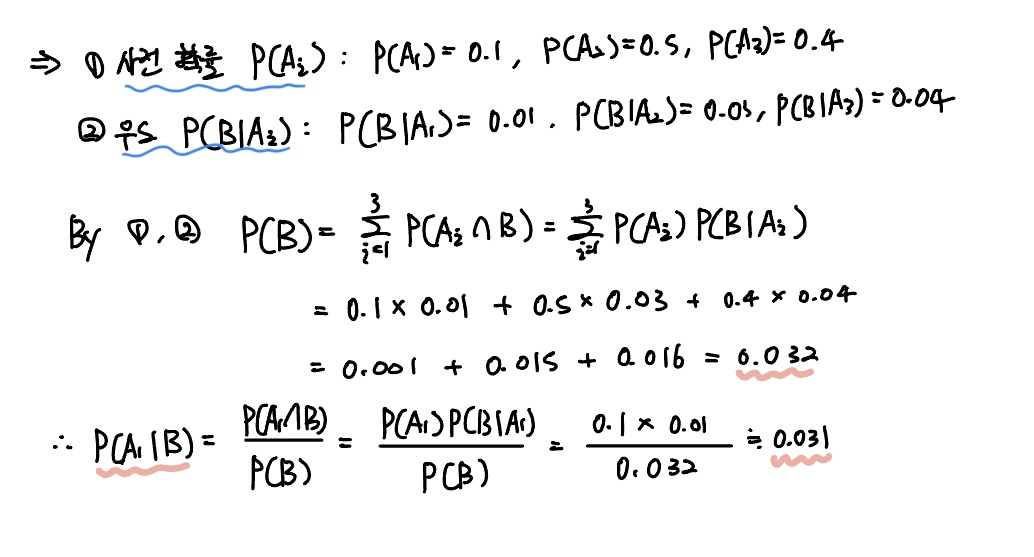 ⇒ ① 사전 확률 P(Aᵢ) : P(A₁) = 0.1 , P(A₂) = 0.5, P(A₃) = 0.4
② 우도 P(B|Aᵢ) : P(B|A₁) = 0.01 . P(B|A₂) = 0.03, P(B|A₃) = 0.04
By ①, ② P(B) = ∑_{i=1}^{3} P(Aᵢ ∩ B) = ∑_{i=1}^{3} P(Aᵢ) P(B|Aᵢ)
= 0.1 × 0.01 + 0.5 × 0.03 + 0.4 × 0.04
= 0.001 + 0.015 + 0.016 = 0.032
∴ P(A₁|B) = P(A₁∩B) / P(B) = P(A₁)P(B|A₁) / P(B) = 0.1 × 0.01 / 0.032 ≒ 0.031